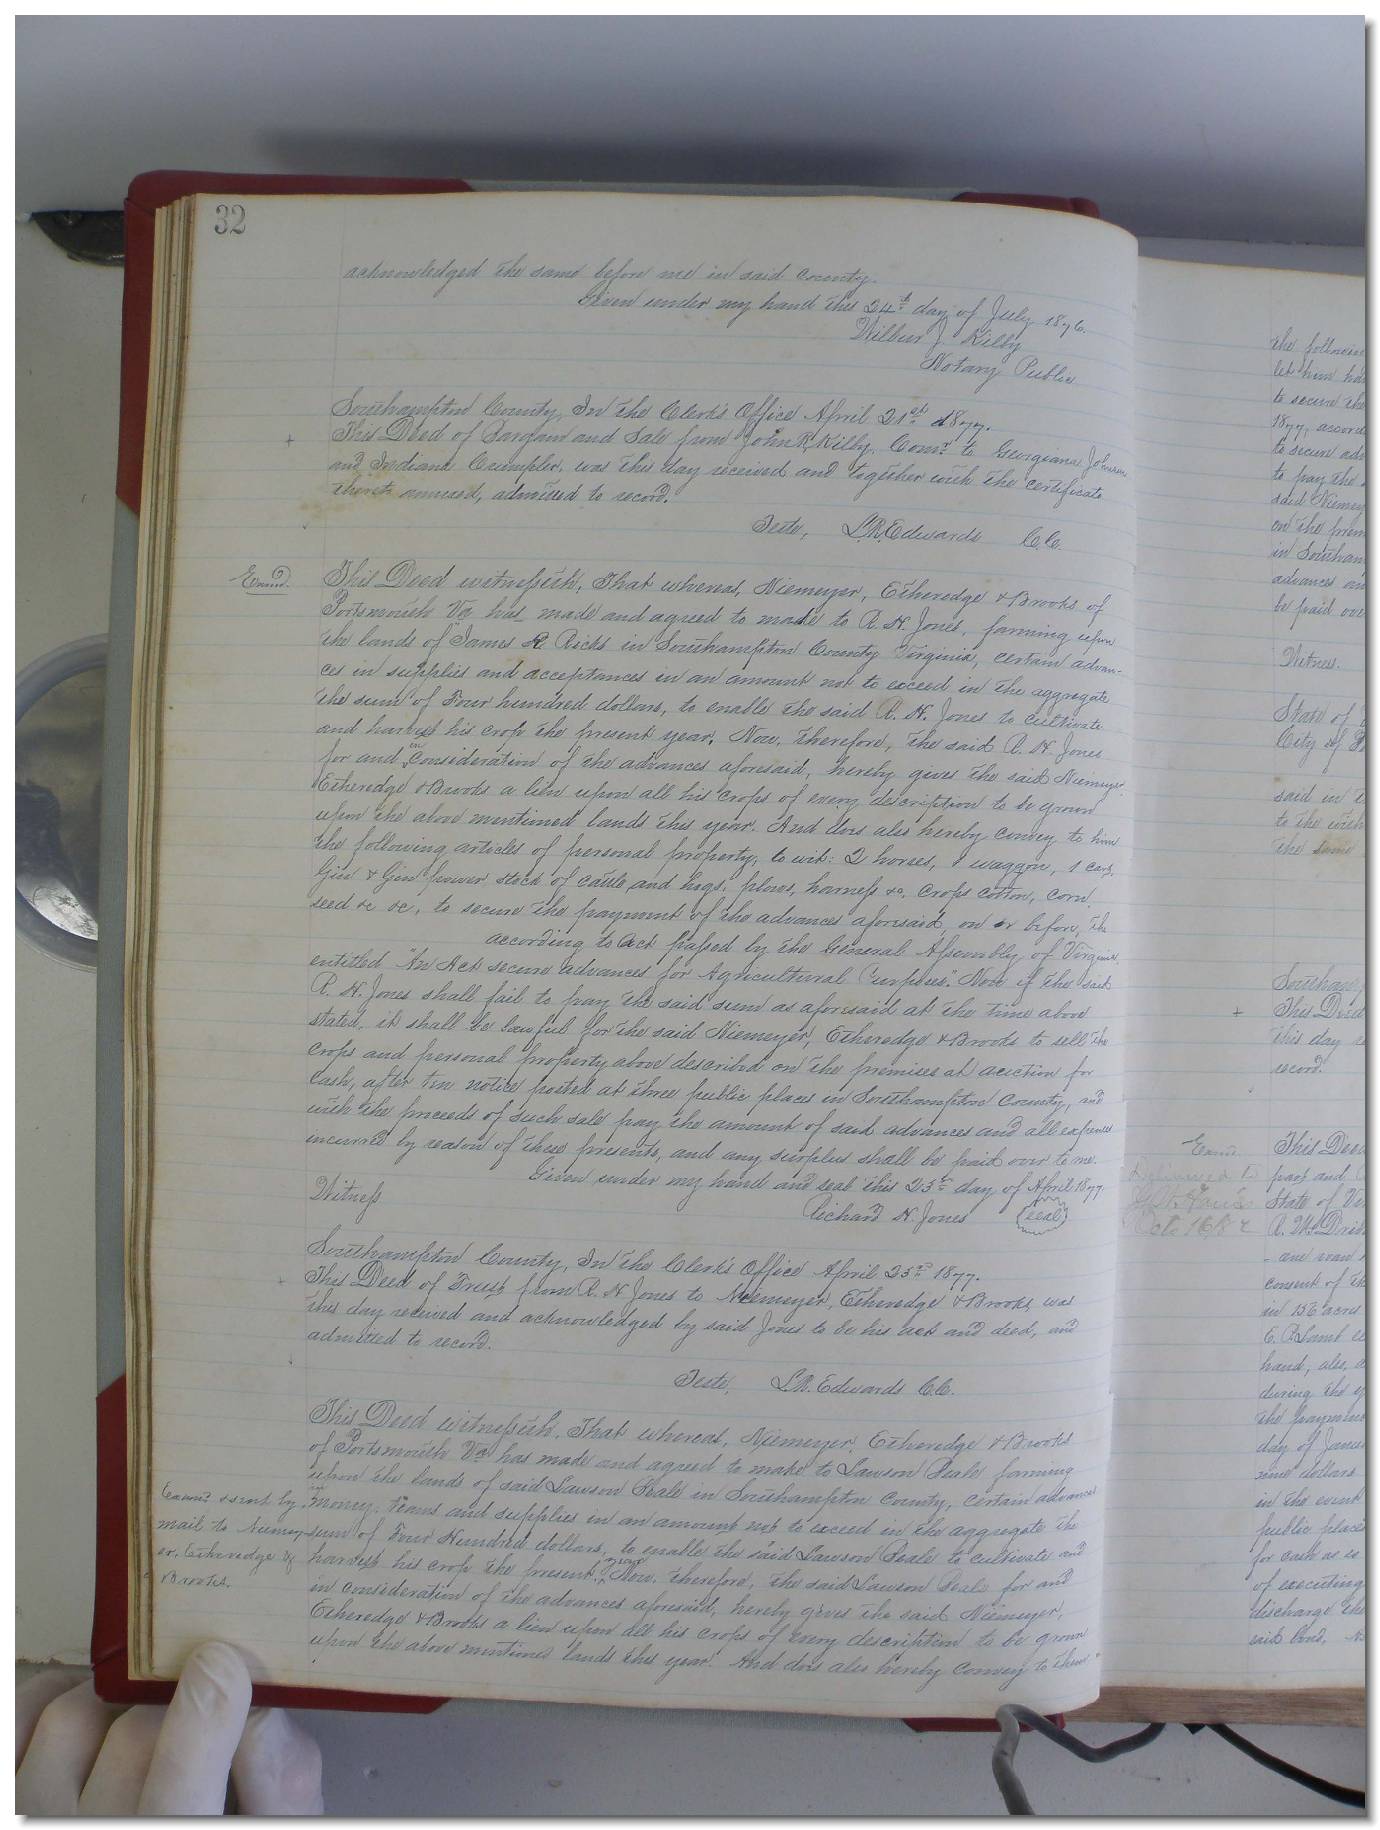 32
acknowledged the same before me in said county.
Given under my hand this 24th day of July 1876.
Wilbur J. Kilby
Notary Public
Southampton County, In the Clerk's Office April 21st 1877.
This Deed of Bargain and Sale from John R. Kilby, Comr. to Georgiana Johnson
and Indiana Crumpler, was this day received and together with the certificate
thereto annexed, admitted to record.
Teste, L.R. Edwards C.C.
Exmd.
This Deed witnesseth, That whereas, Niemeyer, Etheredge & Brooks of
Portsmouth Va has made and agreed to make to R. H. Jones, farming upon
the lands of James R Ricks in Southampton County Virginia, certain advan-
ces in supplies and acceptances in an amount not to exceed in the aggregate
the sum of Four hundred dollars, to enable the said R. H. Jones to cultivate
and harvest his crop the present year. Now, therefore, the said R. H. Jones
for and in consideration of the advances aforesaid, hereby gives the said Niemeyer
Etheredge & Brooks a lien upon all his crops of every description to be grown
upon the above mentioned lands this year. And does also hereby convey to him
the following articles of personal property, to wit: 2 horses, 1 waggon, 1 cart,
Gin & Gin power, stock of cattle and hogs, plows, harness &c. Crops cotton, corn,
seed &c &c, to secure the payment of the advances aforesaid, on or before, the
according to Act passed by the General Assembly of Virginia
entitled "An Act secure advances for Agricultural Purposes." Now if the said
R. H. Jones shall fail to pay the said sum as aforesaid at the time above
stated, it shall be lawful for the said Niemeyer, Etheredge & Brooks to sell the
crops and personal property above described on the premises at auction for
cash, after ten notice posted at three public places in Southampton County, and
with the proceeds of such sale pay the amount of said advances and all expenses
incurred by reason of these presents, and any surplus shall be paid over to me.
Given under my hand and seal this 23rd day of April 1877.
Witness
Richard H. Jones (seal)
Southampton County, In the Clerk's Office April 23rd 1877.
This Deed of Trust from R. H. Jones to Niemeyer, Etheredge & Brooks, was
this day received and acknowledged by said Jones to be his act and deed, and
admitted to record.
Teste, L.R. Edwards C.C.
This Deed witnesseth, That whereas, Niemeyer, Etheredge & Brooks
of Portsmouth Va has made and agreed to make to Lawson Beale farming
upon the lands of said Lawson Beale in Southampton County, certain advances
in money, teams and supplies in an amount not to exceed in the aggregate the
sum of Four Hundred dollars, to enable the said Lawson Beale to cultivate and
harvest his crop the present year. Now, therefore, the said Lawson Beale for and
in consideration of the advances aforesaid, hereby gives the said Niemeyer,
Etheredge & Brooks a lien upon all his crops of every description to be grown
upon the above mentioned lands this year. And does also hereby convey to them
Examd & sent by
mail to Niemey-
er, Etheredge &
Brooks.
the following
let him
to secure the
1877,
to secure
to pay the
said Niemey
on the prem
in Southam
advances
be paid over
Witness.
State of
City of
said in
to the
the same
Southam
This Deed
this day
record.
Exmd
Delivered to
Oct 16/82
This Deed
part and
State of
consent of
in 156 acres
E. P. Lamb
hand, also,
during the
the payment
day of Janua
nine dollars
in the event
public place
for cash as
of executing
discharge the
said bond,